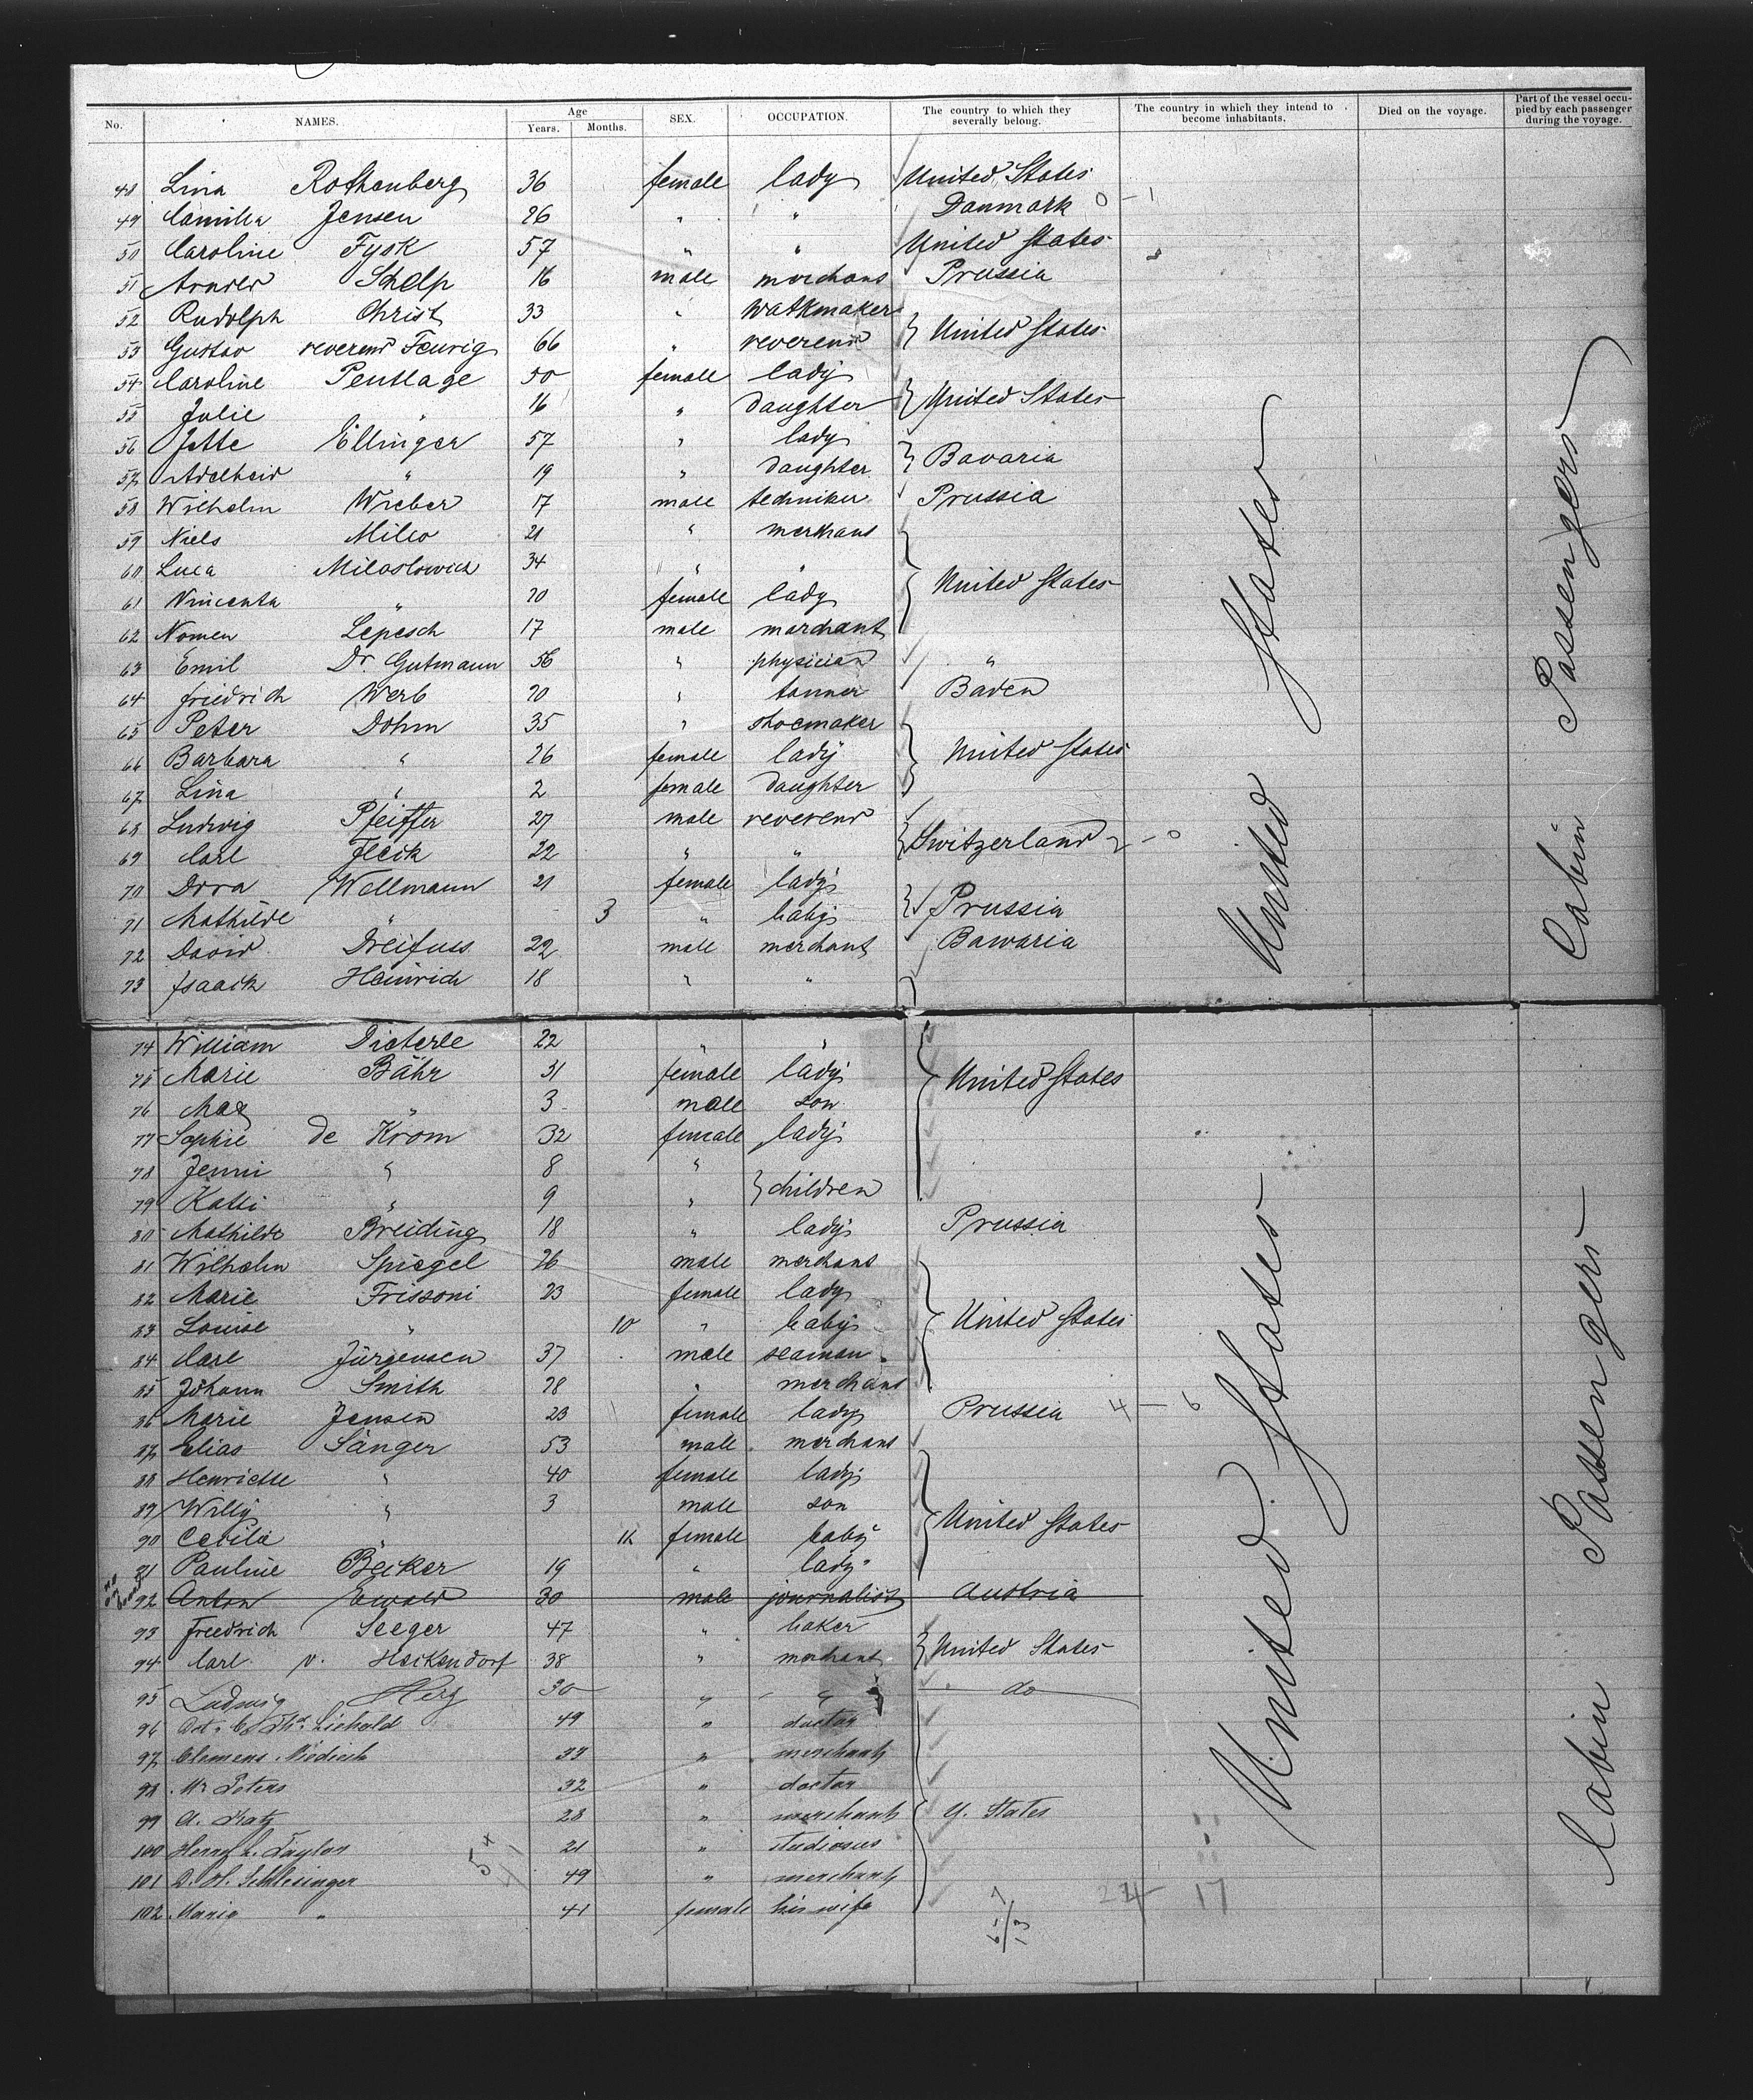 No. NAMES. Age Years. Months. SEX. OCCUPATION. The country to which they severally belong. The country in which they intend to become inhabitants. Died on the voyage. Part of the vessel occupied by each passenger during the voyage.
48 Lina Rothenberg 36 female lady United States
49 Camilla Jensen 26 " " Danmark 0 - 1
50 Caroline Fysk 57 " " United States
51 Arnold Schelp 16 male merchant Prussia
52 Rudolph Christ 33 " watkmaker
53 Gustav reverend Feurig 66 " reverend } United States
54 Caroline Pentlage 50 female lady
55 Julie " 16 " daughter } United States
56 Jette Ellinger 57 " lady
57 Adelheid " 19 " daughter } Bavaria
58 Wilhelm Wieber 17 male techniker Prussia
59 Niels Mileo 21 " merchant
60 Luca Miloslowich 34 " "
61 Vincenta " 20 female lady } United States
62 Nomen Lepesch 17 male marchant
63 Emil Dr. Gutmann 56 " physician "
64 Friedrich Werb 20 " tanner Baden
65 Peter Dohm 35 " shoemaker
66 Barbara " 26 female lady } United States
67 Lina " 2 female daughter
68 Ludwig Pfeiffer 27 male reverend
69 Carl Fleck 22 " " } Switzerland 2 - 0
70 Dora Wellmann 21 female lady
71 Mathilde " 3 " baby } Prussia
72 David Dreifuss 22 male merchant Bawaria
73 Isaack Heinrich 18 " "
74 William Dieterle 22 " "
75 Marie Bähr 31 female lady } United States
76 Max " 3 male son
77 Sophie de Krom 32 female lady
78 Jenni " 8 "
79 Katti " 9 " } children
80 Mathilde Breiding 18 " lady Prussia
81 Wilhelm Spiegel 26 male merchant
82 Marie Frissoni 23 female lady
83 Louise " 10 " baby } United States
84 Carl Jürgensen 37 male seaman
85 Johann Smith 28 " merchant
86 Marie Jensen 23 female lady Prussia 4 - 6
87 Elias Sänger 53 male merchant
88 Henriette " 40 female lady
89 Willy " 3 male son } United States
90 Cecilia " 11 female baby
91 Pauline Becker 19 " lady
92 Anton Ewald 30 male journalist Austria
93 Friedrich Seeger 47 " baker
94 Carl v. Heckendorf 38 " merchant } United States
95 Ludwig Herz 30 " " do
96 Liebold 49 " doctor
97 Clemens Niedieck 33 " merchant
98 Mr Peters 32 " doctor
99 A. Katz 28 " merchant } U. States
100 Henry L. Taylor 21 " studiosus
101 D. H. Schlesinger 49 " merchant
102 Maria " 41 female his wife 24 - 17
United States
Cabin Passengers
United States
Cabin Passengers